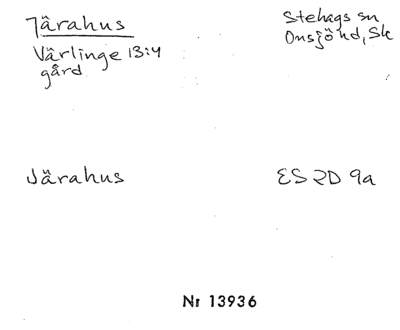 Järahus
Värlinge 13:4
gård
Stehags sn
Onsjö hd, Sk
Järahus
ES 2D 9a
Nr 13936